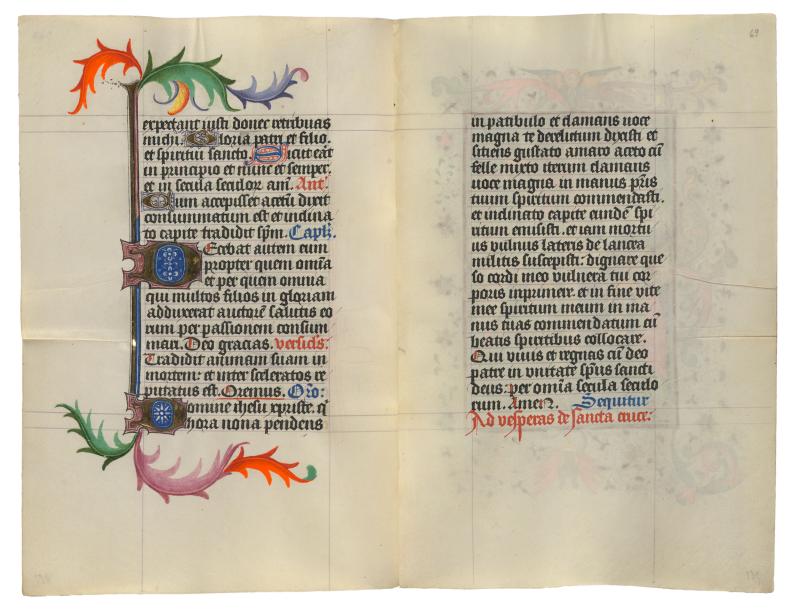 expectant iusti donec retribuas
michi. Gloria patri et filio.
et spiritui sancto. Sicut erāt
in principio et nunc et semper.
et in secula seculoꝝ am̄. Ant̄.
Cum accepisset acetū dixit
consummatum est et inclina
to capite tradidit sp̄m. Capl̄ꝫ.
Decebat autem eum
propter quem om̄ia
et per quem omnia
qui multos filios in gloriam
adduxerat auctorē salutis eo
rum per passionem consum
mari. Deo gracias. versicl̄s.
Tradidit animam suam in
mortem: et inter sceleratos re
putatus est. Oremus. Or̄o:
Domine ihesu xpriste. q̄
hora nona pendens
69
in patibulo et clamans uoce
magna te derelictum dixisti et
sitiens gustato amaro aceto cū
felle mixto iterum clamans
uoce magna in manus pr̄is
tuum spiritum commendasti.
et inclinato capite eundē spi
ritum emisisti. et iam mortu
us vulnus lateris de lancea
militis suscepisti: dignare que
so cordi meo vulnera tui cor
poris inprimere. et in fine vite
mee spiritum meum in ma
nus tuas commendatum cū
beatis spiritibus collocare.
Qui viuis et regnas cū deo
patre in vnitate sp̄us sancti
deus: per om̄ia secula seculo
rum. Amen. Sequitur
Ad vesperas de sancta cruce: